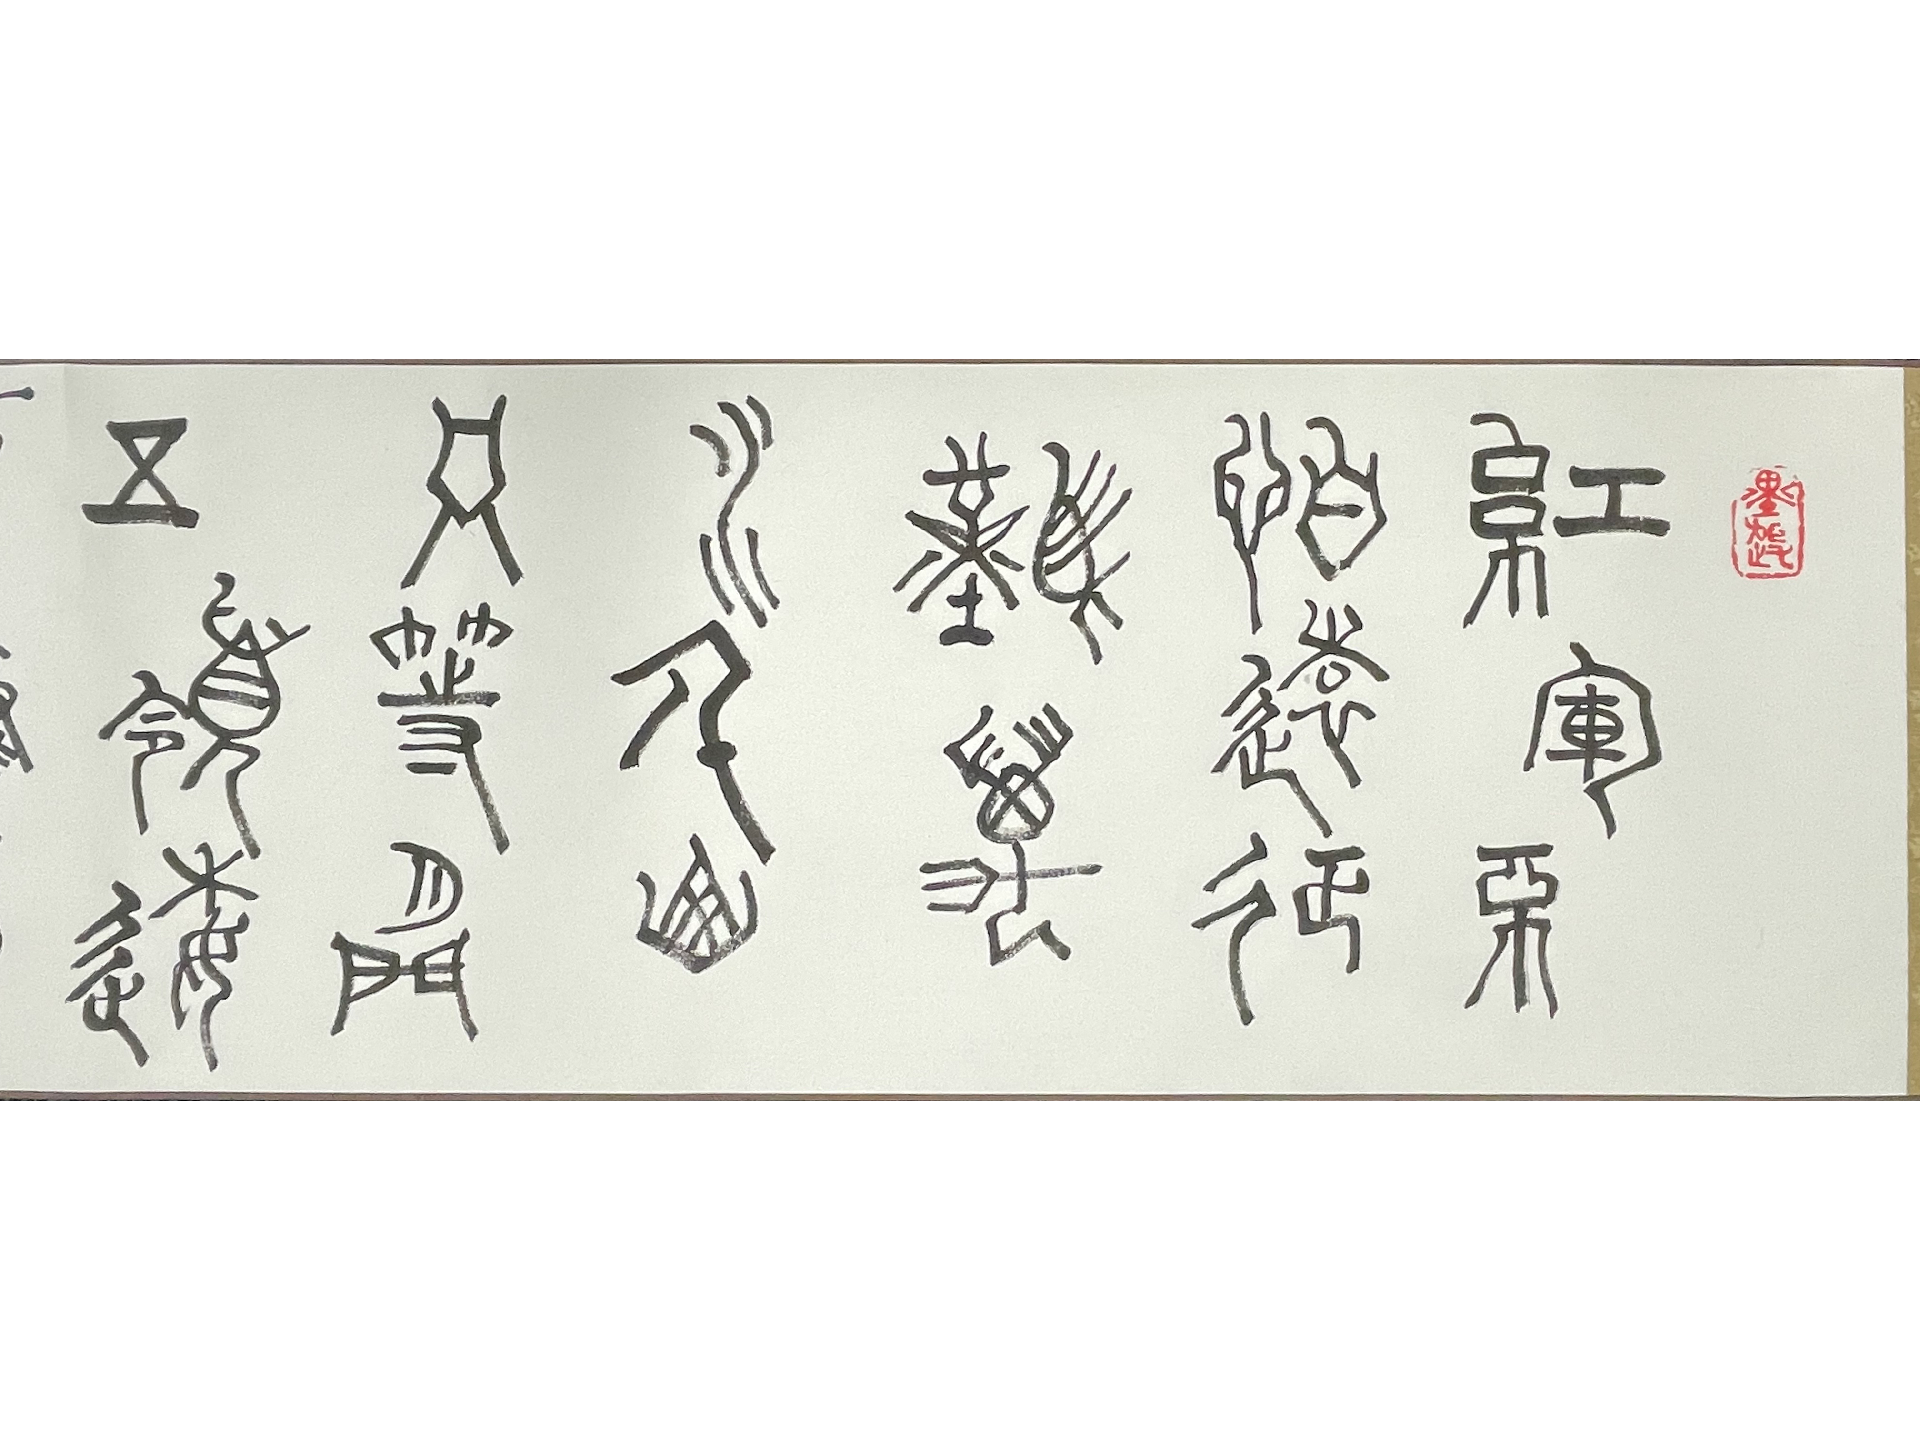 紅軍不
怕遠征
難萬
水千山
只等閒
五嶺逶